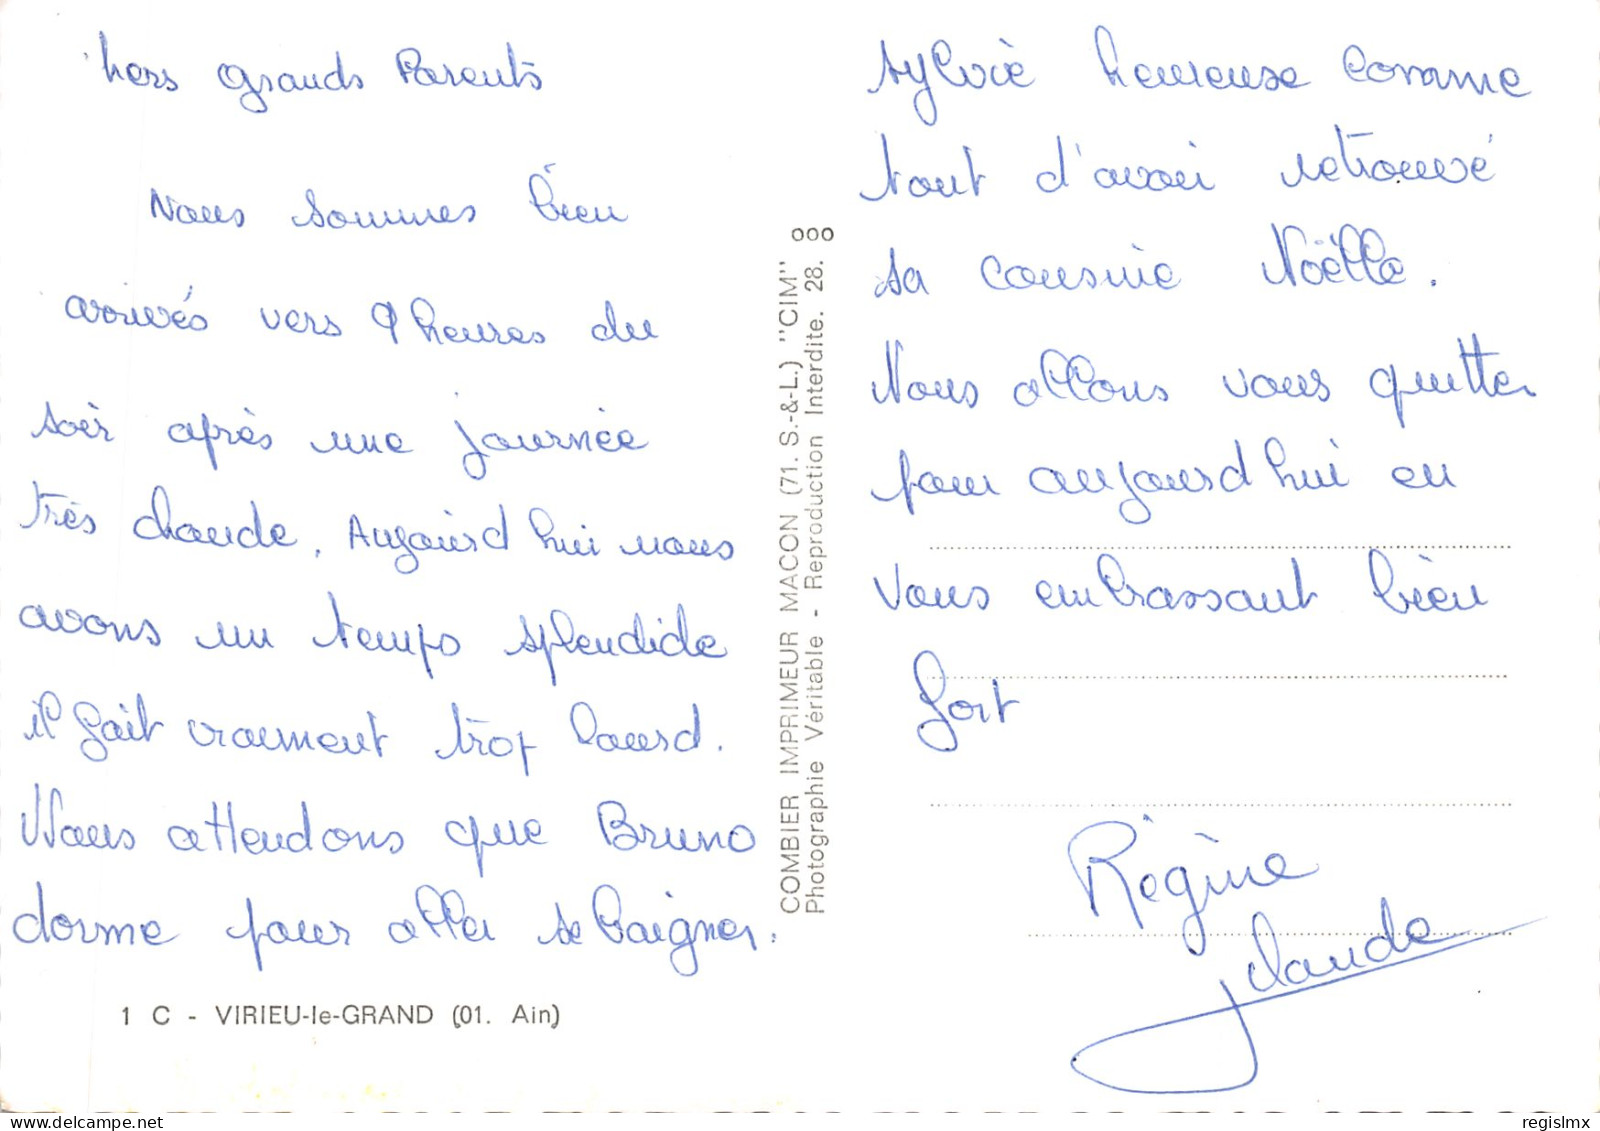 hers grands Parents
Nous sommes bien
arrivés vers 9 heures du
soir après une journée
très chaude. Aujourd'hui nous
avons un temps splendide
il fait vraiment trop lourd.
Nous attendons que Bruno
dorme pour aller se baigner.
1 C - VIRIEU-le-GRAND (01. Ain)
COMBIER IMPRIMEUR MACON (71. S.-&-L.) "CIM"
Photographie Véritable - Reproduction Interdite. 28. ooo
Sylvie heureuse comme
tout d'avoir retrouvé
sa cousine Noëlle.
Nous allons vous quitter
pour aujourd'hui en
vous embrassant bien
fort
Régine
JClaude
regislmx